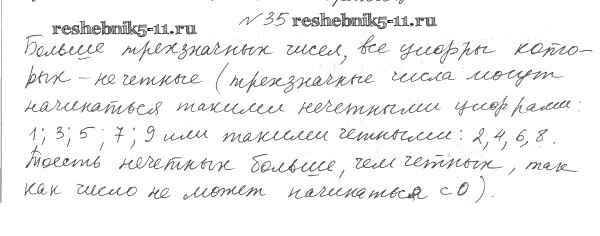 №35 reshebnik5-11.ru
reshebnik5-11.ru
Больше трехзначных чисел, все цифры кото-
рых – нечетные (трехзначные числа могут
начинаться такими нечетными цифрами:
1; 3; 5; 7; 9 или такими четными: 2, 4, 6, 8.
Тоесть нечетных больше, чем четных, так
как число не может начинаться с 0).